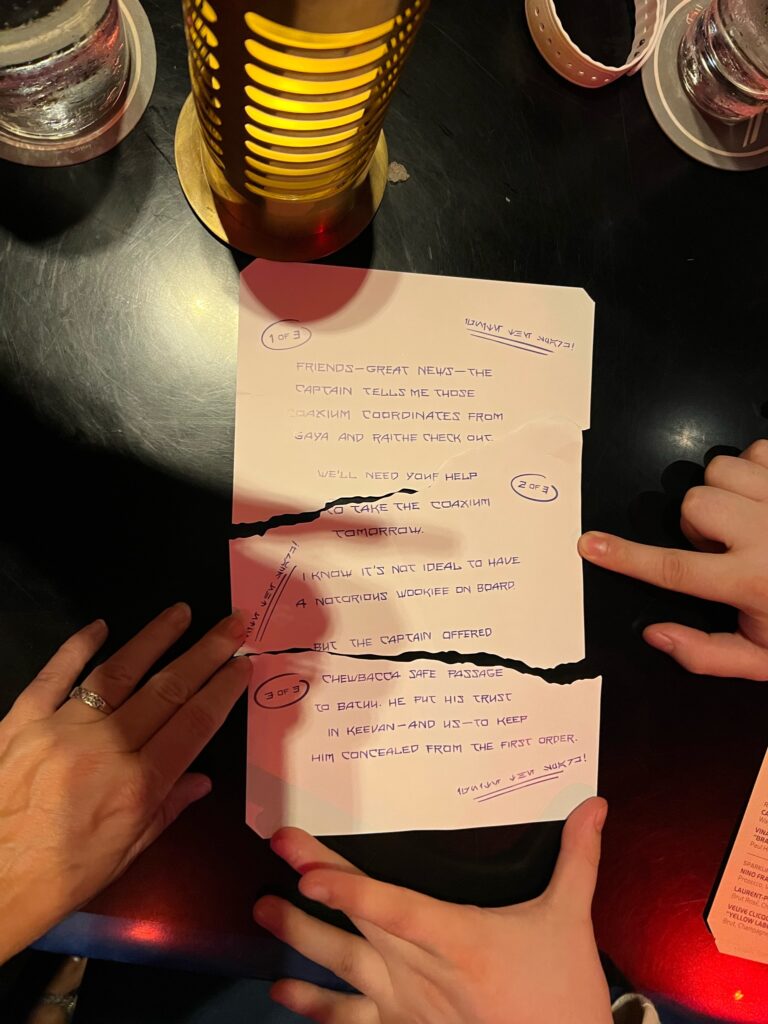 1 OF 3
FRIENDS—GREAT NEWS—THE
CAPTAIN TELLS ME THOSE
COAXIUM COORDINATES FROM
GAYA AND RAITHE CHECK OUT.
WE'LL NEED YOUR HELP
2 OF 3
TO TAKE THE COAXIUM
TOMORROW.
I KNOW IT'S NOT IDEAL TO HAVE
A NOTORIOUS WOOKIEE ON BOARD.
BUT THE CAPTAIN OFFERED
3 OF 3
CHEWBACCA SAFE PASSAGE
TO BATUU. HE PUT HIS TRUST
IN KEEVAN—AND US—TO KEEP
HIM CONCEALED FROM THE FIRST ORDER.
SPARKLI
NINO FRA
Prosecco, V
LAURENT-P
Brut Rosé, Ch
VEUVE CLICQ
"YELLOW LAB
Brut, Champagne